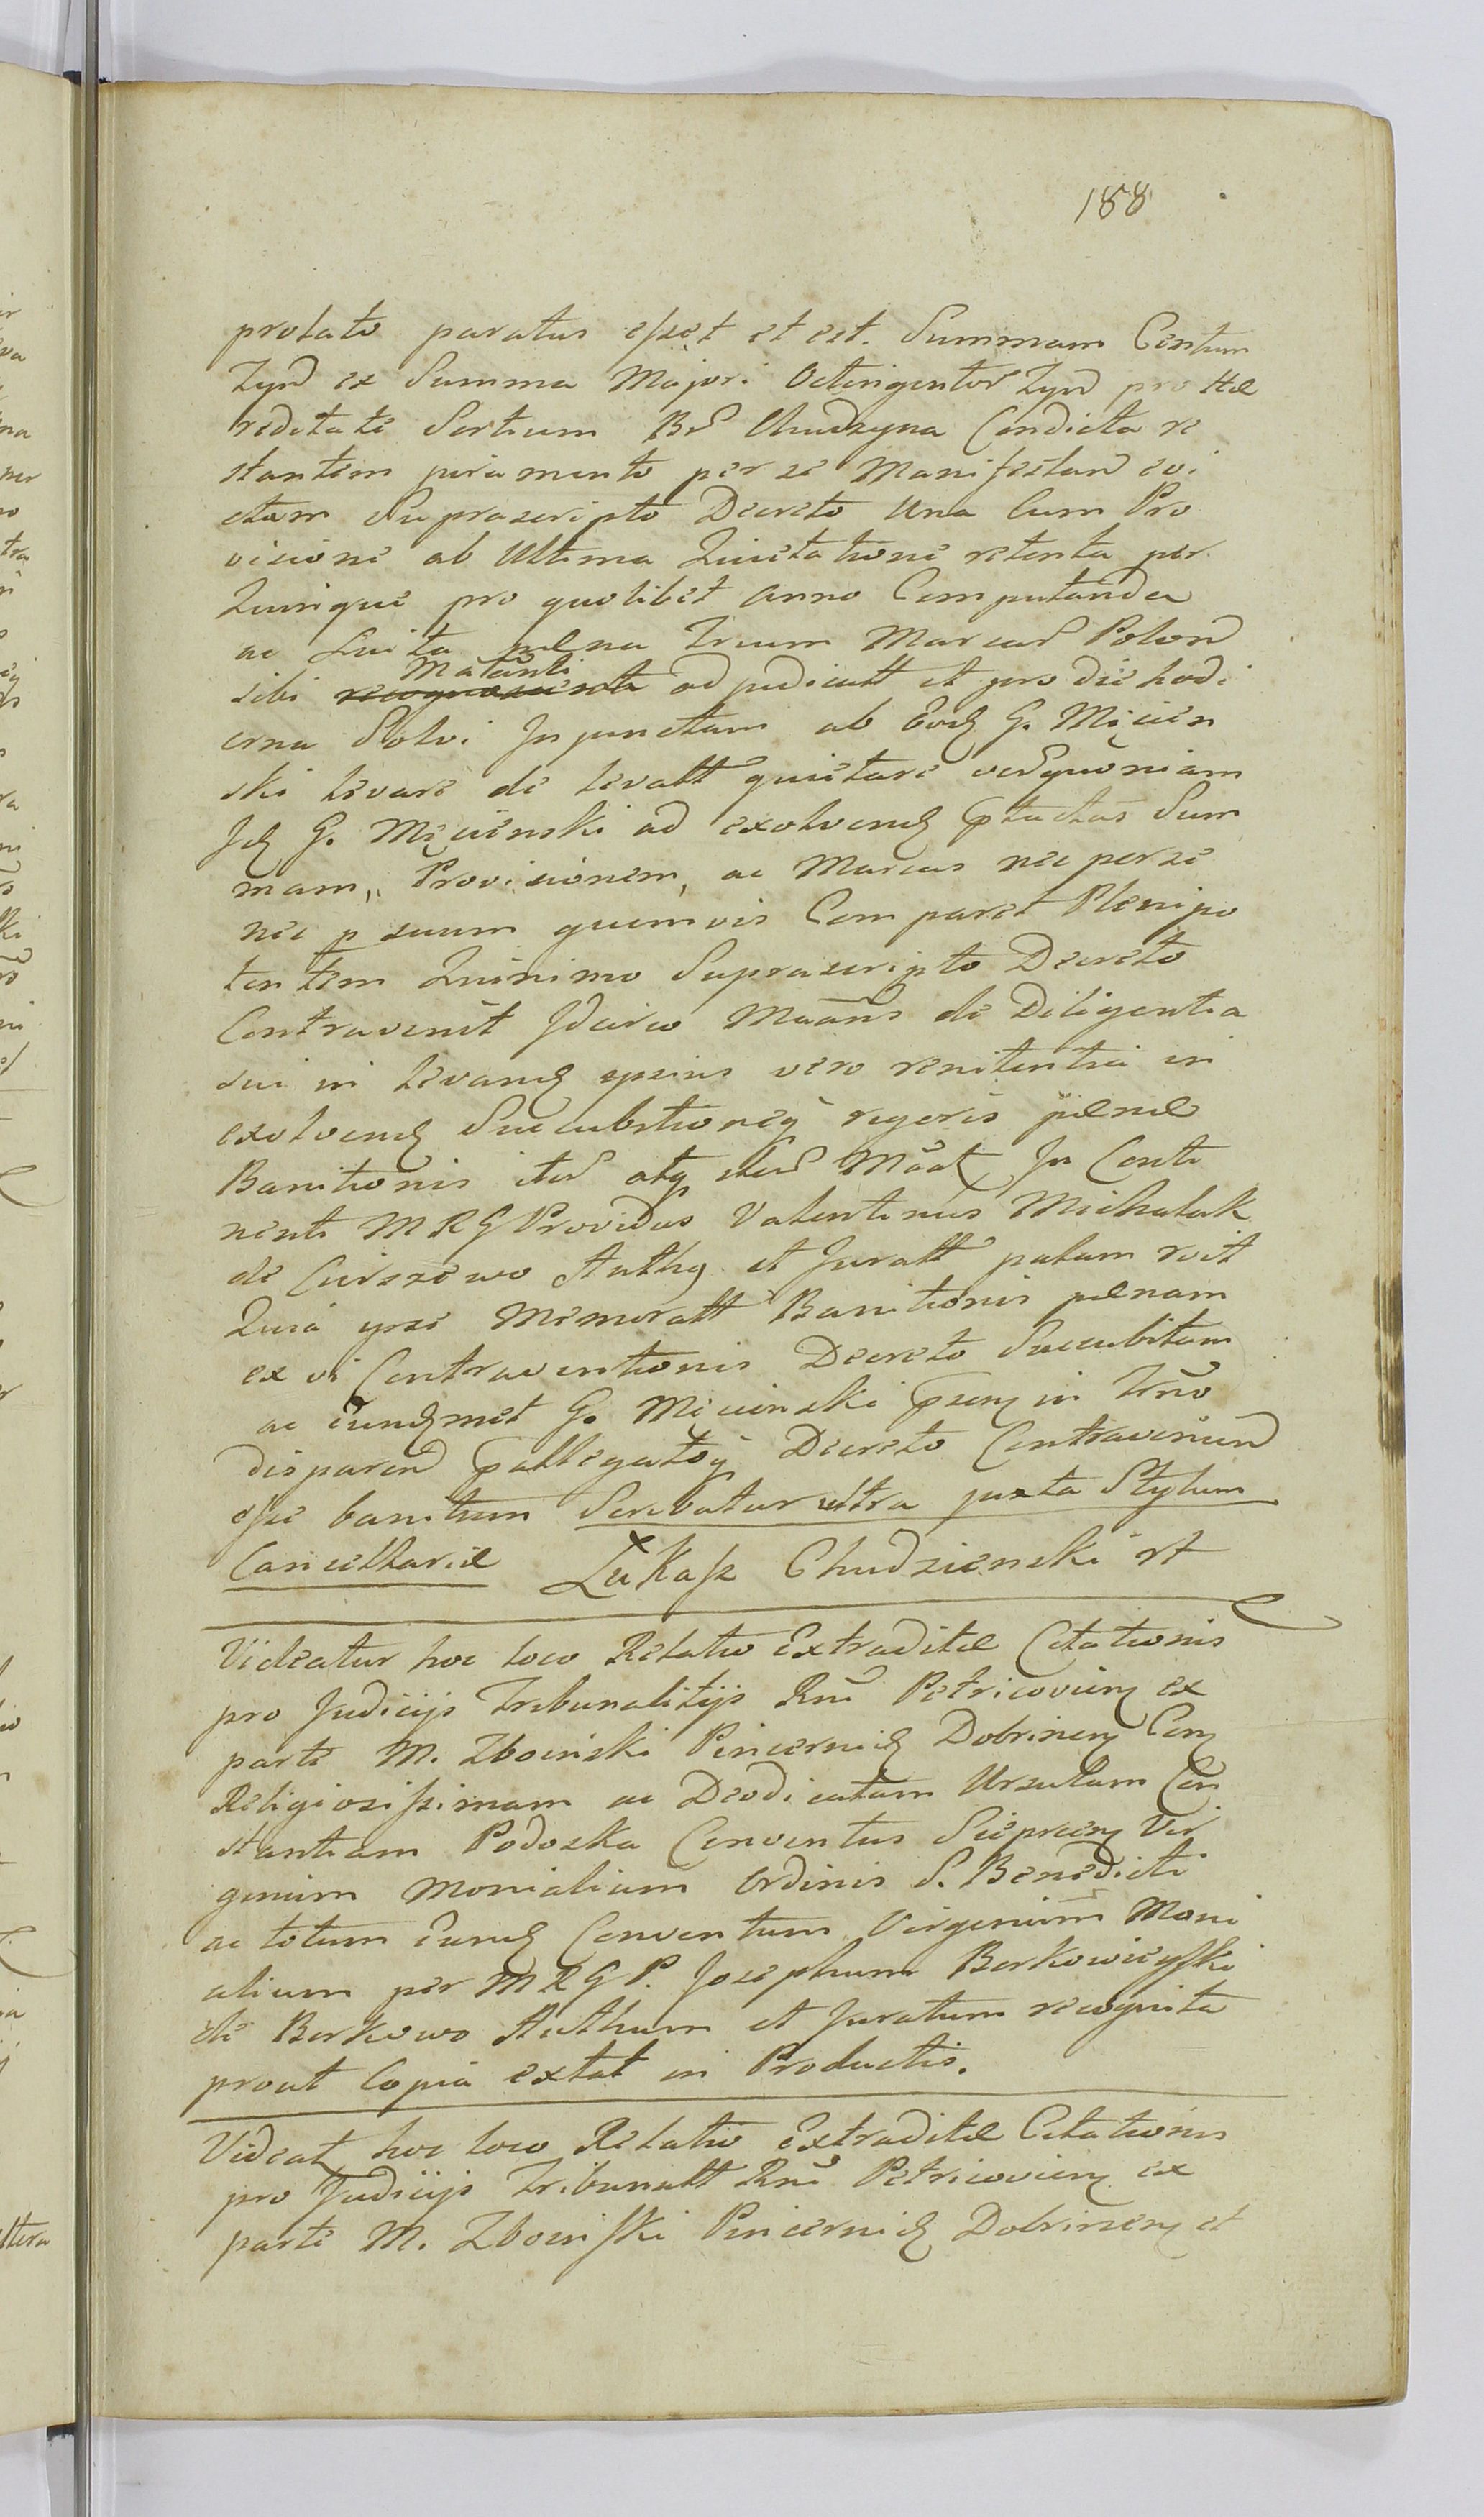 188
prolato paratus esset et est. Summam Centum
Zynd ex Summa Majori Octingentor Zynd pro Hæ
reditate Sortium Br Chudzyna Condicta re
stantem juramento per se Manifestand evi
ctam Suprascripto Decreto Una Cum Pro
visione ab Ultima Quietatione retenta per
Quinque pro quolibet anno Computanda
ac Luita pæna Trium Marcar Polond
Mātānti
sibi ad judicatt et pro die hodi
erna Solvi Injunctam ab Eodz G. Mięcien
ski levare de levatt quietare verquoniam
Idz G. Męcienski ad exolvendz ptactas Sum
mam, Provisionem, ac Marcas nec per se
nec p suum quemvis Comparet Plenipo
tentem Quinimo Suprascripto Decreto
Contravenit Idcirco Māāns de Diligentia
sui in levandz ipsius vero renitentia in
exolvendz Succubitioneq rigoris pænæ
Banitionis iter atq iter Māat In Conti
nenti MRG Providus Valentinus Michalak
de Curszewo Authq et Juratt palam rcit
Quia ipse Memoratt Banitionis pænam
ex vi Contraventionis Decreto Succubitam
ac eundzmet G. Męcienski in Trno
disparend pallegatoq Decreto Contravenien
esse banitum Scribatur ultra juxta Stylum
Cancellariæ Łukasz Chudzienski rt
Videatur hoc loco Relatio Extraditæ Citationis
pro Judicijs Tribunalitijs Rni Petricovien ex
parte M. Zboinski Pincernidz Dobrinen Con
Religiosissimam ac Deodicatam Ursulam Con
stantiam Podoska Conventus Sieprcen Vir
ginum Monialium Ordinis S. Benedicti
ac totum eundz Conventum Virginum Moni
alium per MRG P. Josephum Borkowicysski
de Borkowo Authum et Juratum recognita
prout Copia extat in Productis.
Videat hoc loco Relatio Extraditæ Citationis
pro Judicijs Tribunatt Rni Petricovien ex
parte M. Zboinski Pincernidz Dobrinen et